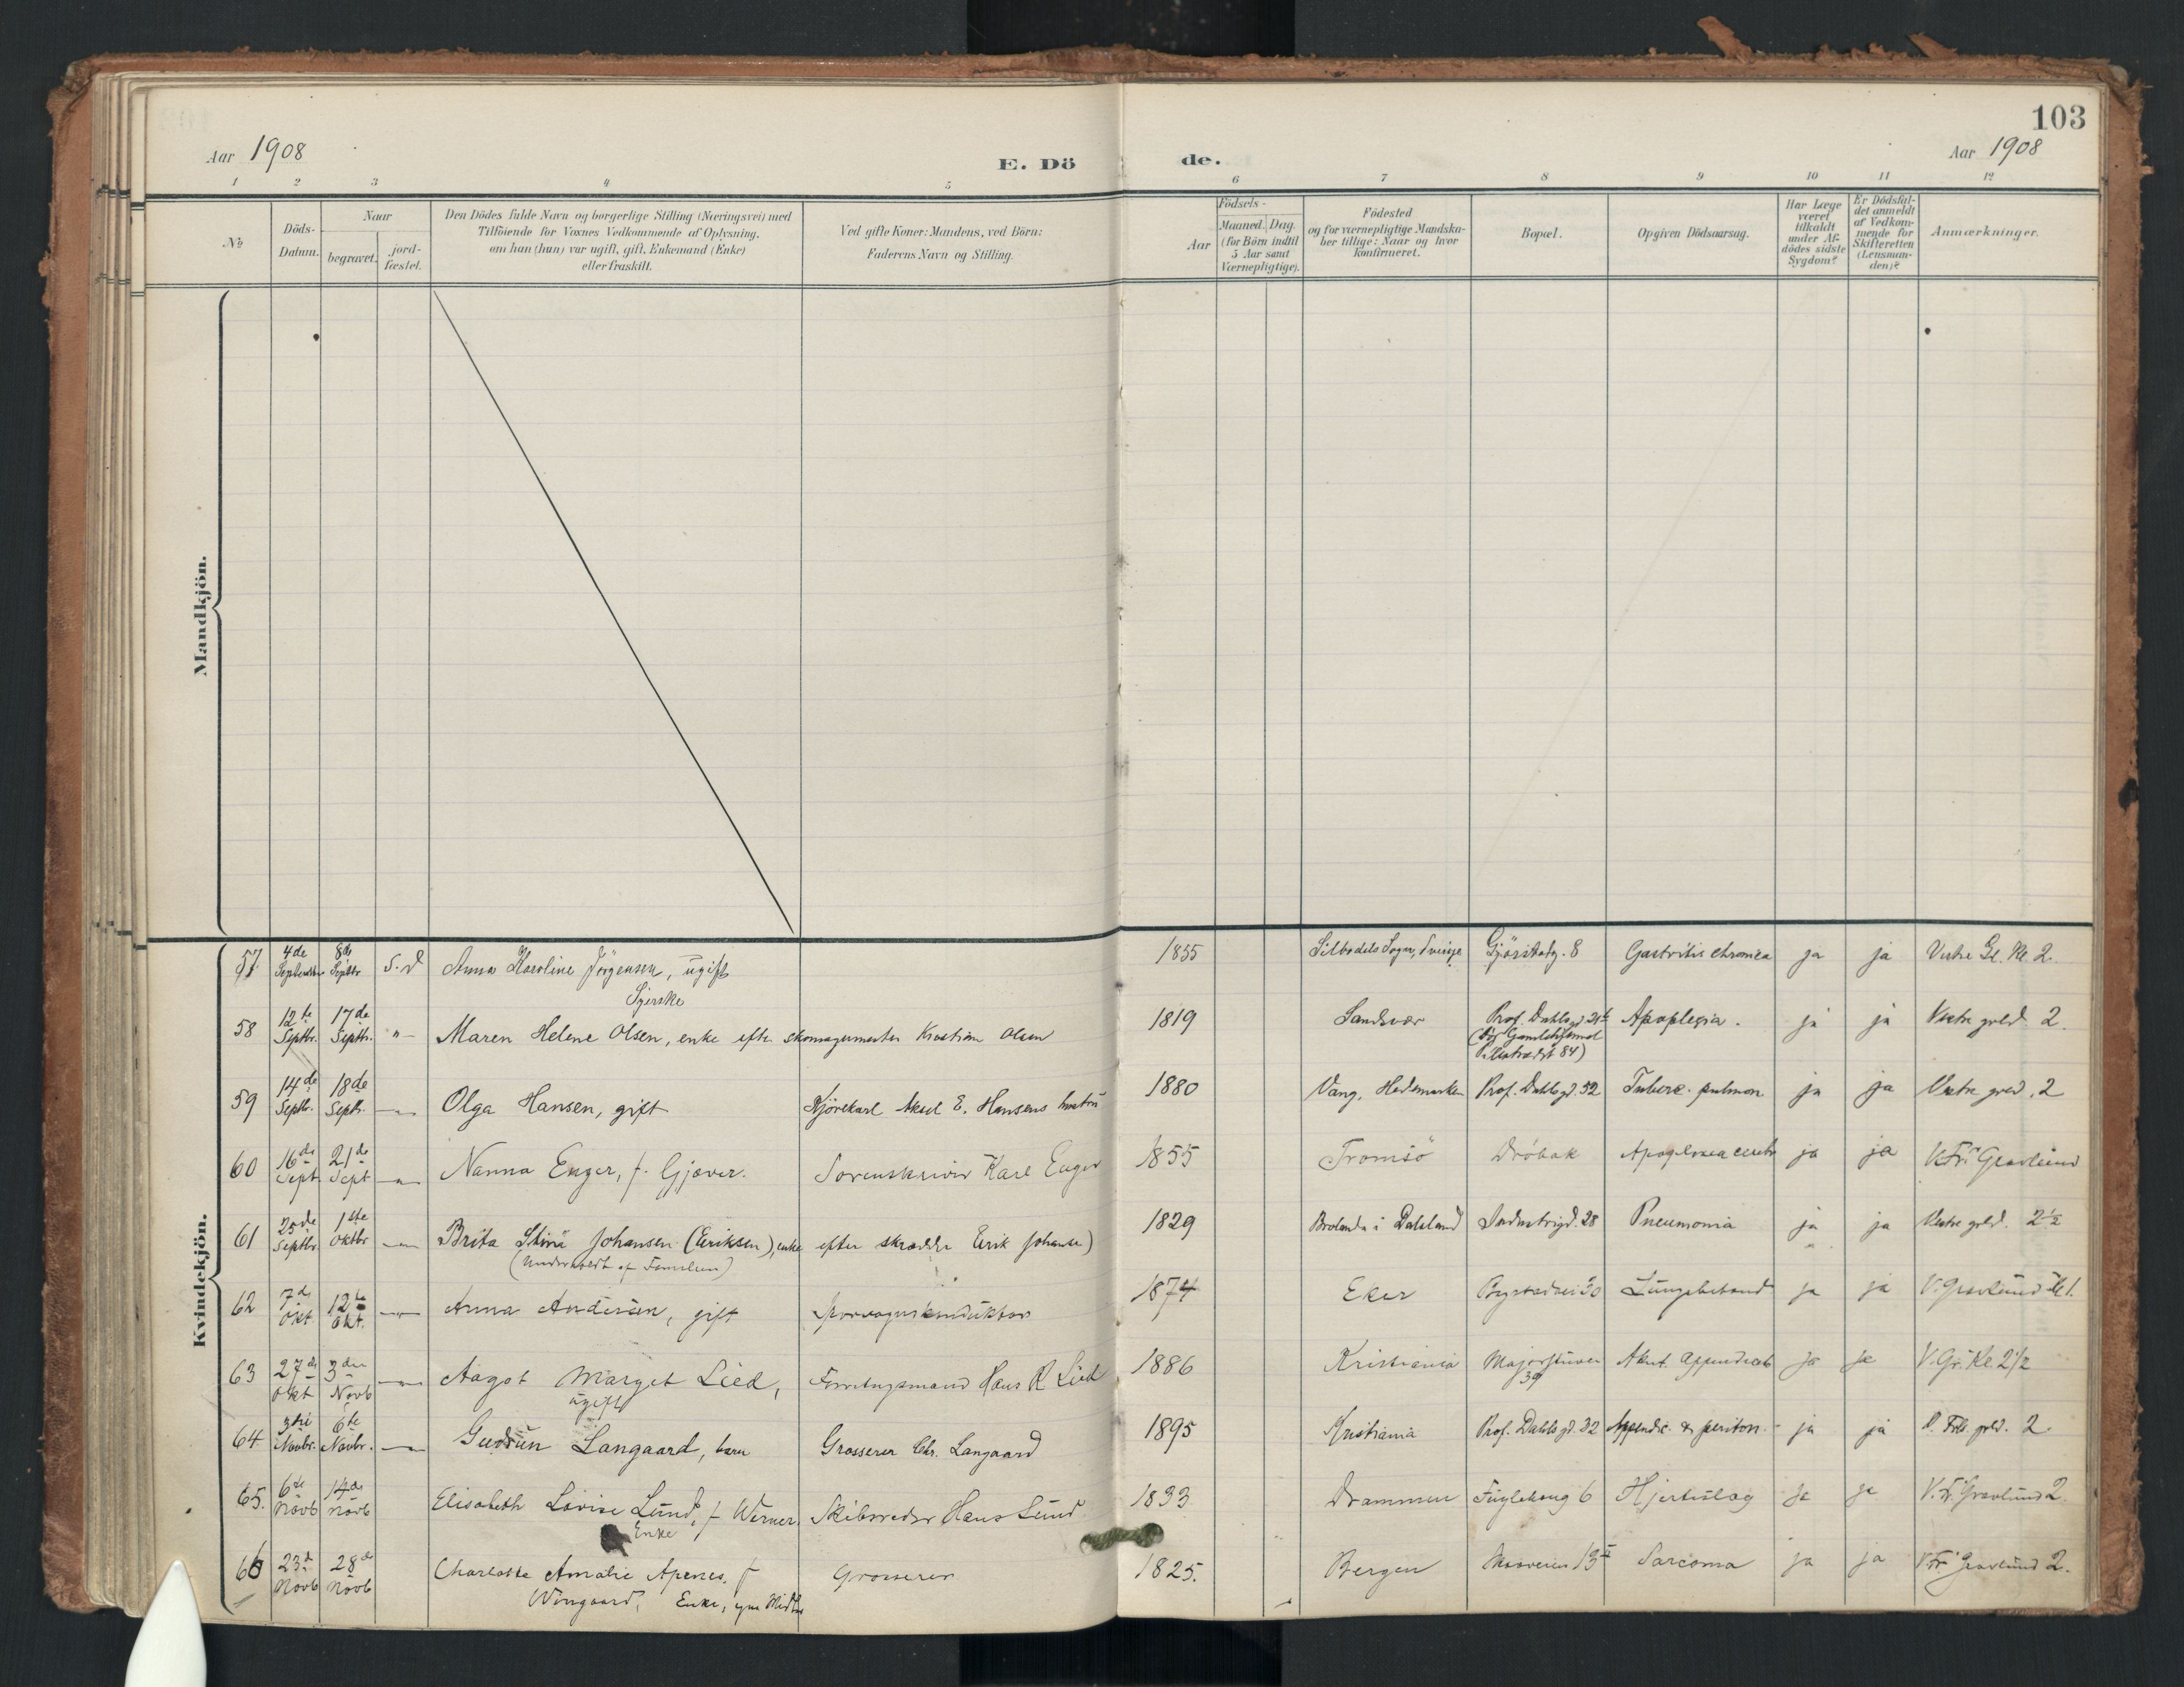 103
Aar 1908
E. Dö de.
Aar 1908
1 2 3 4 5 6 7 8 9 10 11 12
No
Döds-
Datum.
Naar
begravet.
jord-
fæstet.
Den Dödes fulde Navn og borgerlige Stilling (Næringsvei) med
Tilföiende for Voxnes Vedkommende af Oplysning,
om han (hun) var ugift, gift, Enkemand (Enke)
eller fraskilt.
Ved gifte Koner: Mandens, ved Börn:
Faderens Navn og Stilling.
Födsels-
Aar
Maaned. Dag.
(for Börn indtil
5 Aar samt
Værnepligtige).
Födested
og for værnepligtige Mandska-
ber tillige: Naar og hvor
konfirmeret.
Bopæl.
Opgiven Dödsaarsag.
Har Læge
været
tilkaldt
under Af-
dödes sidste
Sygdom?
Er Dödsfal-
det anmeldt
af Vedkom-
mende for
Skifteretten
(Lensman-
den)?
Anmærkninger.
Mandkjön.
Kvindekjön.
57. 4de September 8de Septbr. S.d Anna Karoline Jörgensen, ugift 1855 Silbodels Sogn, Sverige 8 Gastritis chronica ja ja Vestre Gr. Kl. 2.
Syerske
58 12te Septbr. 17de Septbr. -"- Maren Helene Olsen, enke efter skomagermester Kristian Olsen 1819 Sandsvær Prof. Dahls gd. Apoplegia. ja ja Vestre grld. 2.
84)
59 14de Septbr. 18de Septr. -"- Olga Hansen, gift Kjörekarl Aksel E. Hansens hustru 1880 Vang, Hedemarken Prof. Dahls gd. 52 Tuberc. pulmon ja ja Vestre grld. 2
60 16de Sept 21de Sept -"- Nanna Enger, f. Gjæver. Sorenskriver Karl Enger 1855 Tromsö Dröbak ja ja V. Fr. Gravlund
61 25de Septbr 1ste Oktbr -"- Brita Stina Johansen (Eriksen), enke efter skrædder Erik Johansen) 1829 Brolanda i Dalsland Industrigd. 28 Pneumonia ja ja Vestre grld. 2½
(Understøtt. af Familien)
62 7de Okt 12te Okt. -"- Anna Andersen, gift Sporvognskonduktør 1874 Eker 30 Lungebetænd ja ja V. Gravlund Kl 1.
63 27de Okt 3die Novb -"- Aagot Marget Lied, Hans R Lied 1886 Kristiania Majorstuveien 39 Akut. Appendicit ja ja V. Gr. Kl. 2½
ugift
64 3die Novbr. 6te Novbr. -"- Gudrun Langaard, barn Grosserer Chr. Langaard 1895 Kristiania Prof. Dahls gd. 32 Appendic. & periton. ja ja V. Frs. grld. 2
65. 6te Novb 14de Novb Elisabeth Lovise Lund, f. Werner. Skibsreder Hans Lund 1833 Drammen Fuglehaug 6 Hjerteslag ja ja V. Fr. Gravlund 2.
Enke
66 23de Novb 28de Novb Charlotte Amalie Apenes, f. Grosserer 1825. Bergen 13 II Sarcoma ja ja V. Fr. Gravlund 2.
Wingaard, Enke, egne Midler